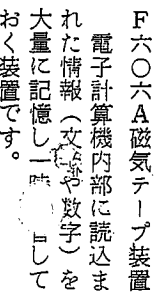 F六〇六A磁気テープ装置
電子計算機内部に読込ま
れた情報（文字や数字）を
大量に記憶し一時 して
おく装置です。